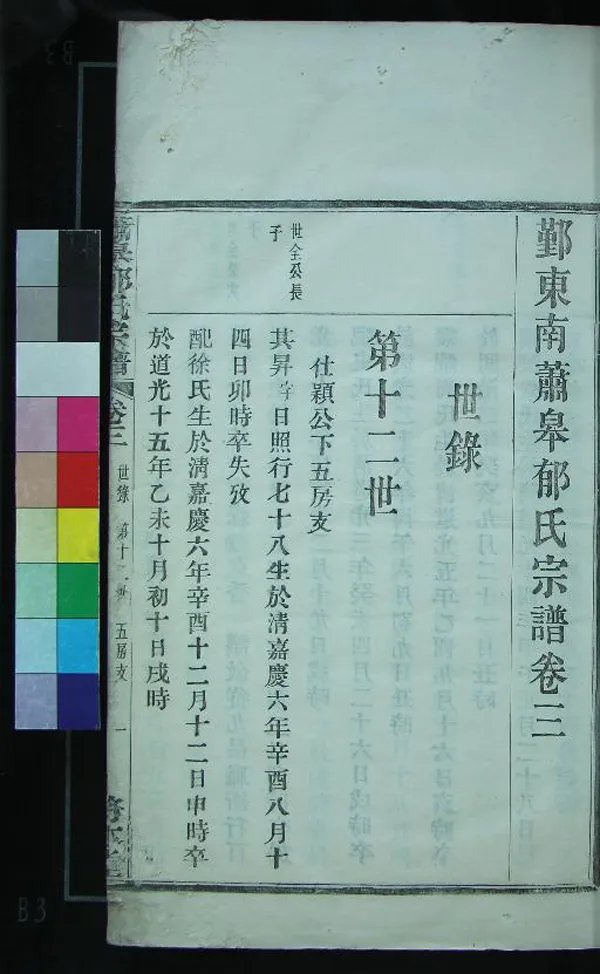 鄞東南蕭皋郁氏宗譜卷三
世錄
第十二世
仕穎公下五房支
世全公長
子
其昇字日照行七十八生於清嘉慶六年辛酉八月十
四日卯時卒失攷
配徐氏生於清嘉慶六年辛酉十二月十二日申時卒
於道光十五年乙未十月初十日戌時
蕭皋郁氏宗譜 卷三 世錄 第十二世 五房支 一
B3
B3